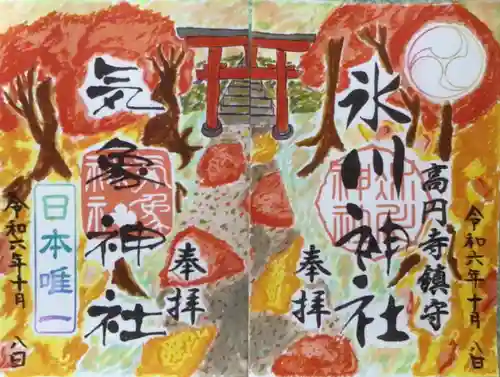 高円寺鎮守
氷川神社
奉拝
令和六年十月 八日
気象神社
奉拝
日本唯一
令和六年十月 八日